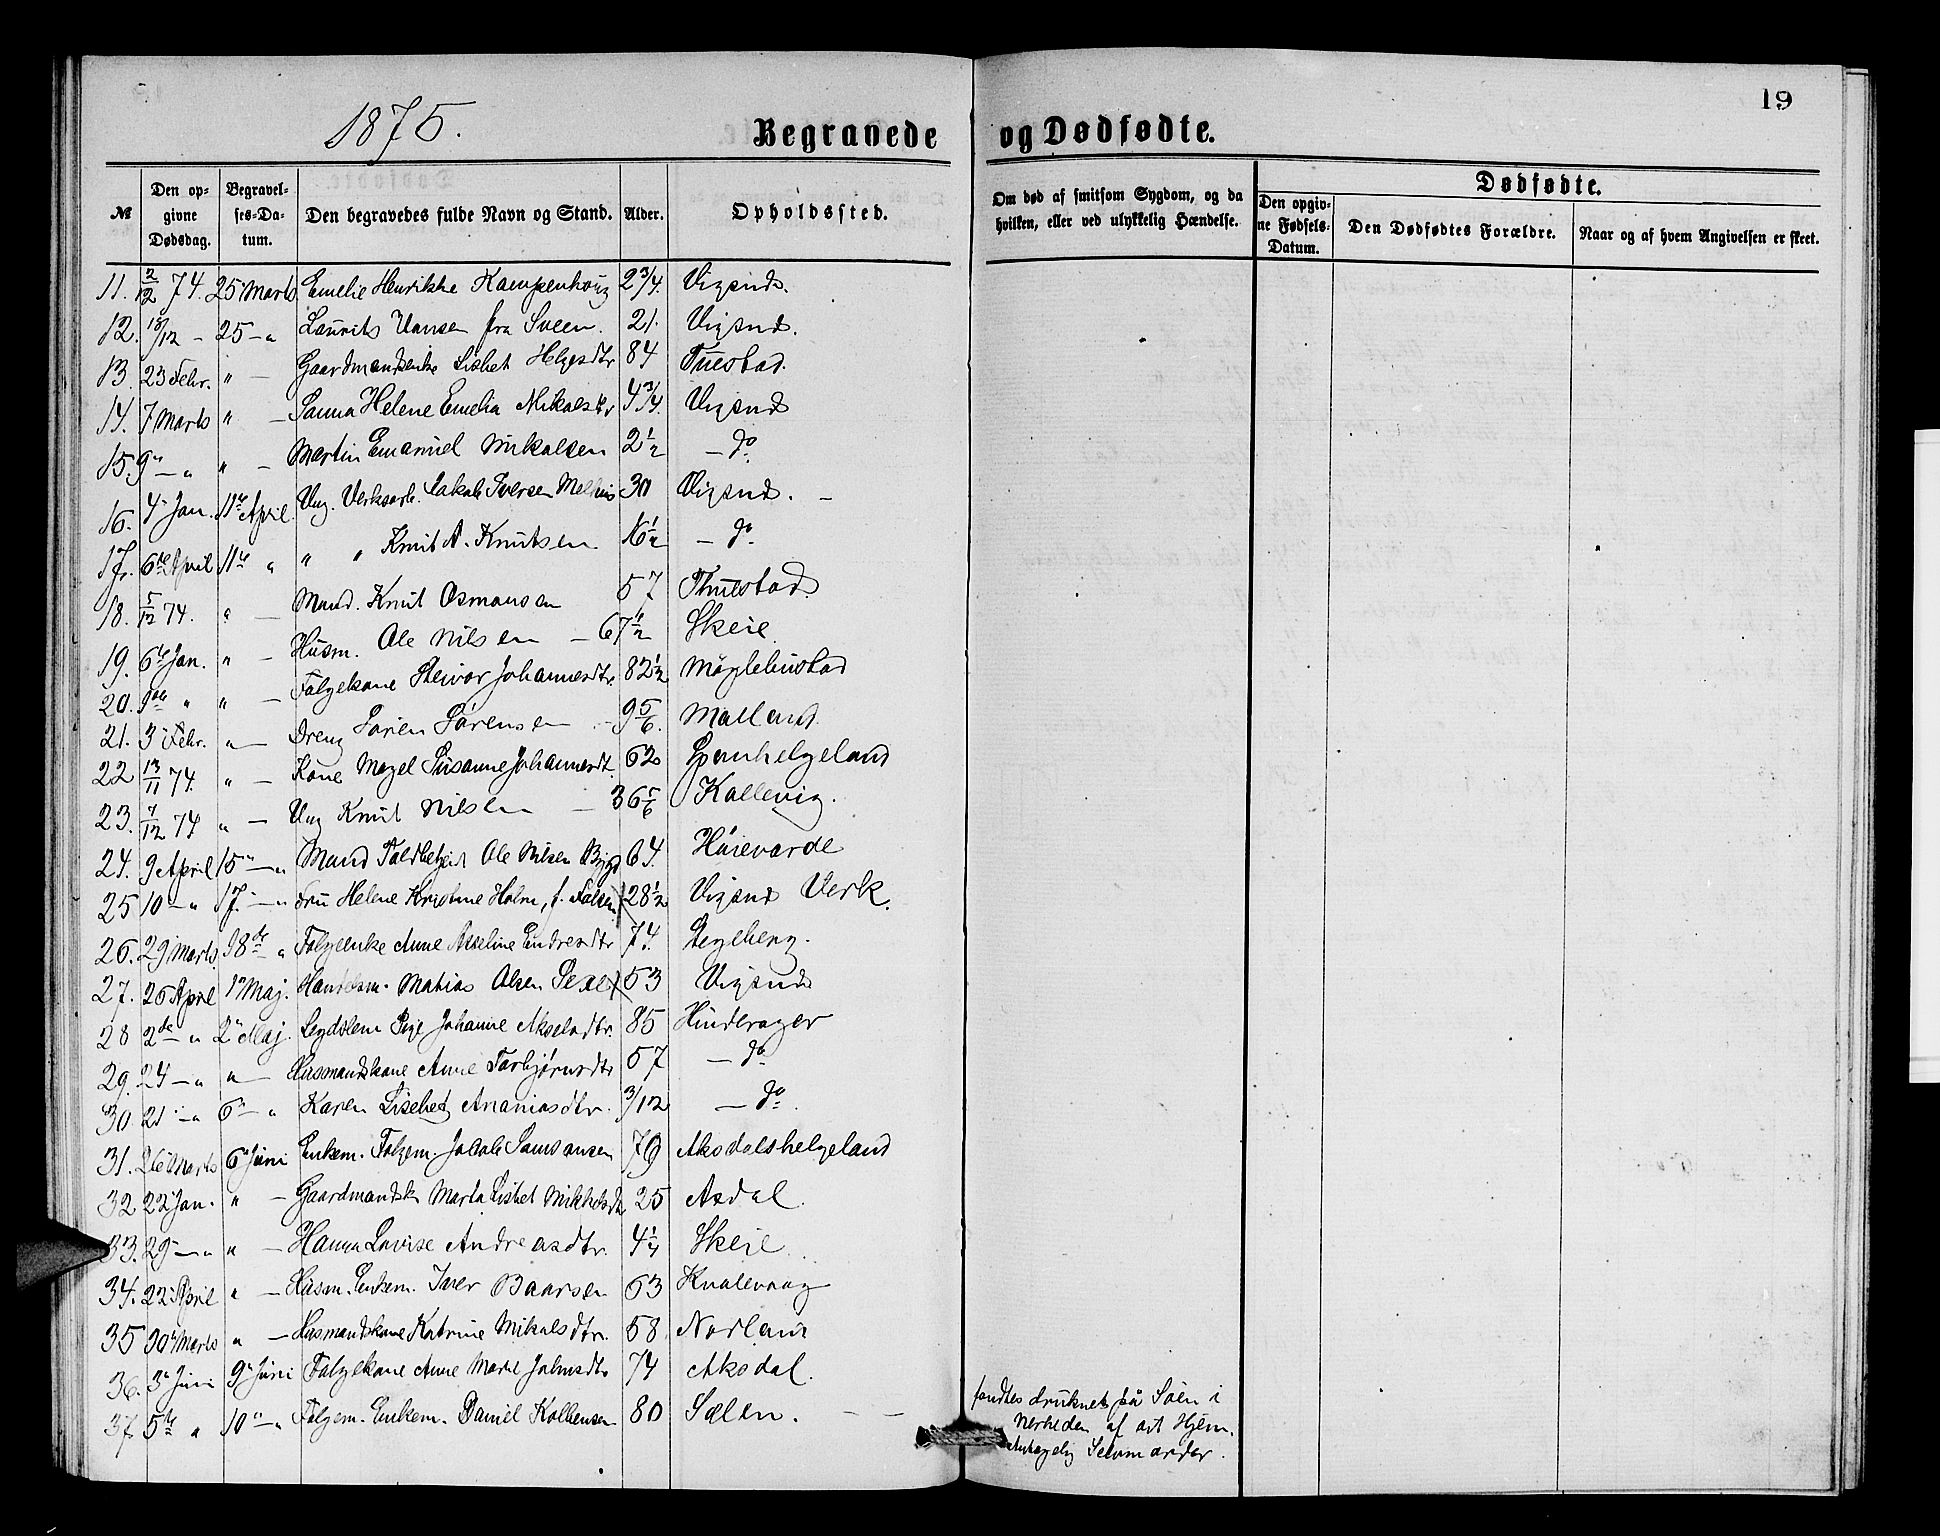 19
1875.
Begravede og Dødfødte.
№ Den opgivne Dødsdag. Begravelses-Datum. Den begravedes fulde Navn og Stand. Alder. Opholdssted. Om død af smitsom Sygdom, og da hvilken, eller ved ulykkelig Hændelse. Dødfødte. Den opgivne Fødsels-Datum. Den Dødfødtes Forældre. Naar og af hvem Angivelsen er skeet.
11. 2/12 74. 25 Marts Emelie Henrikke Kampenhoug 2 3/4. Vigsnæs.
12. 18/12 - 25 - " Laurits Hansen fra Sveen. 21. Vigsnæs.
13. 23 Febr. " - Gaardmandsenke Lisbet Helgesdtr 84 Tuestad.
14. 7 Marts " - Sanna Helene Emelia Mikalsdtr 4 3/4. Vigsnæs
15. 9" - " " - Martin Emanuel Mikalsen 2 1/2 - do
16. 4" Jan. 11te April. Ung. Verksarb. Jakob Iversen 30 Vigsnæs. -
17. 6te April 11te " " " Knut A. Knutsen 16 1/2 - do
18. 5/12 74. " - Mand. Knut Osmunsen 57 Thuestad.
19. 6te Jan. " - Husm. Ole Nilsen - 67 1/2 Skeie
20. 9de " " - Folgekone Steivor Johannesdtr. 82 1/2 Møglebustad
21. 3" Febr. " - Dreng Søren Sørensen - 9 5/6. Malland.
22 13/11 74. " - Kone Magel Susanne Johannesdt. 62 Spanhelgeland
23. 7/12 74 " - Ung Knut Nilsen - 36 5/6 Kallevig.
24. 9 April 15" - " Mand Toldbetjent Ole Nilsen 64. Høievarde
25 10 - " 17. - " Fru Helene Kristine Holm, f. Falsen 28 1/2 Vigsnæs Verk.
26. 29 Marts. 18de " Folgeenke Anne Asseline Endresdtr 74. Stegeberg.
27. 26 April 1" Maj. Handelsm. Matias Olsen 53 Vigsnæs
28 2de - " 2" Maj. Legdslem Pige Johanne Akselsdtr. 85 Hinderager
29. 24 - " " - Husmandskone Anne Torbjørnsdtr 57 - do
30. 21 - " 6" - " Karen Lisebet Ananiasdtr. 3/12 - do.
31. 26" Marts 6" Juni Enkem. Folgem. Jakob Samsonsen 79 Aksdalshelgeland
32 22" Jan. " - Gaardmandsk Marta Lisbet Mikkelsdtr 25 Asdal.
33. 29 - " " - Hanna Lovise Andreasdtr. 4 1/4 Skeie.
34. 22" April " - Husm. Enkem. Iver Baarsen 63 Kvalevaag
35 30" Marts " - Husmandskone Katrine Mikalsdtr. 58. Norland
36. 3" Juni 9" Juni Folgekone Anne Marte Johnsdtr 74 Aksdal.
37. 5te " 10" - " Folgem. Enkem. Daniel Kolbensen 80 Sælen. - - fandtes druknet på Søen i Nærheden af sit Hjem. Antagelig Selvmorder.